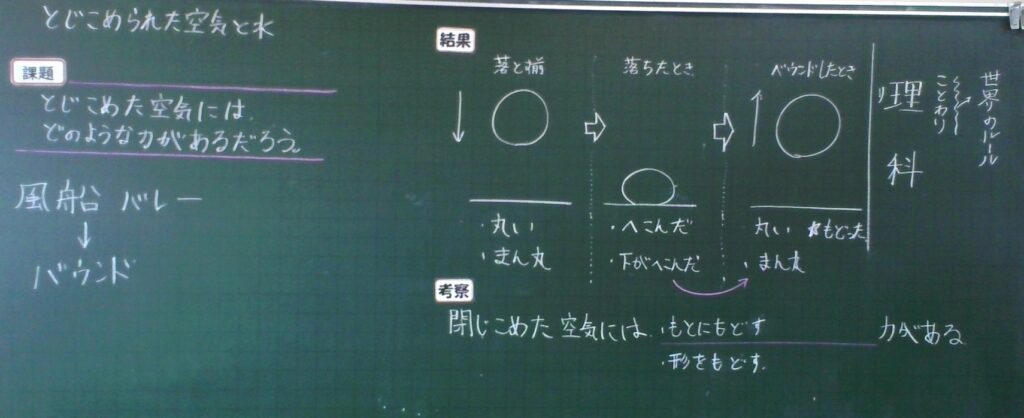 とじこめられた空気と水
課題
とじこめた空気には、
どのような力があるだろう。
風船 バレー
↓
バウンド
結果
落と揃
落ちたとき
バウンドしたとき
・丸い
・まん丸
・へこんだ
・下がへこんだ
丸い もどった
・まん丸
考察
閉じこめた空気には、・もとにもどす 力がある
・形をもどす。
理科
リ
ことわり
世界のルール